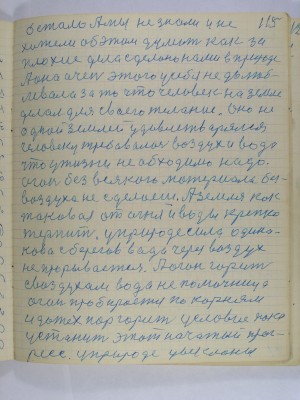 остальАмы не знали и не 115
хотели об этом думать как за
плохие дела сделано нами в природе
А она очень этого себя не должбе
левала за то что человек на земле
делал для своего желание. Оно не
одной землей удовлетворялся
человеку требовался воздух и вода
что у жизни не обходимо надо.
огон без всякого материала без
воздуха не сделаем. А земля как
таковая от огня и воды крепко
терпит. у природе сила одина-
кова с берегов вода через воздух
не прорывается. А огон горит
с воздухам вода не помощница
огон пробирается по корням
и дотех пор горит человек пока
устанит этот начатый прог-
ресс. у природе увиклоны